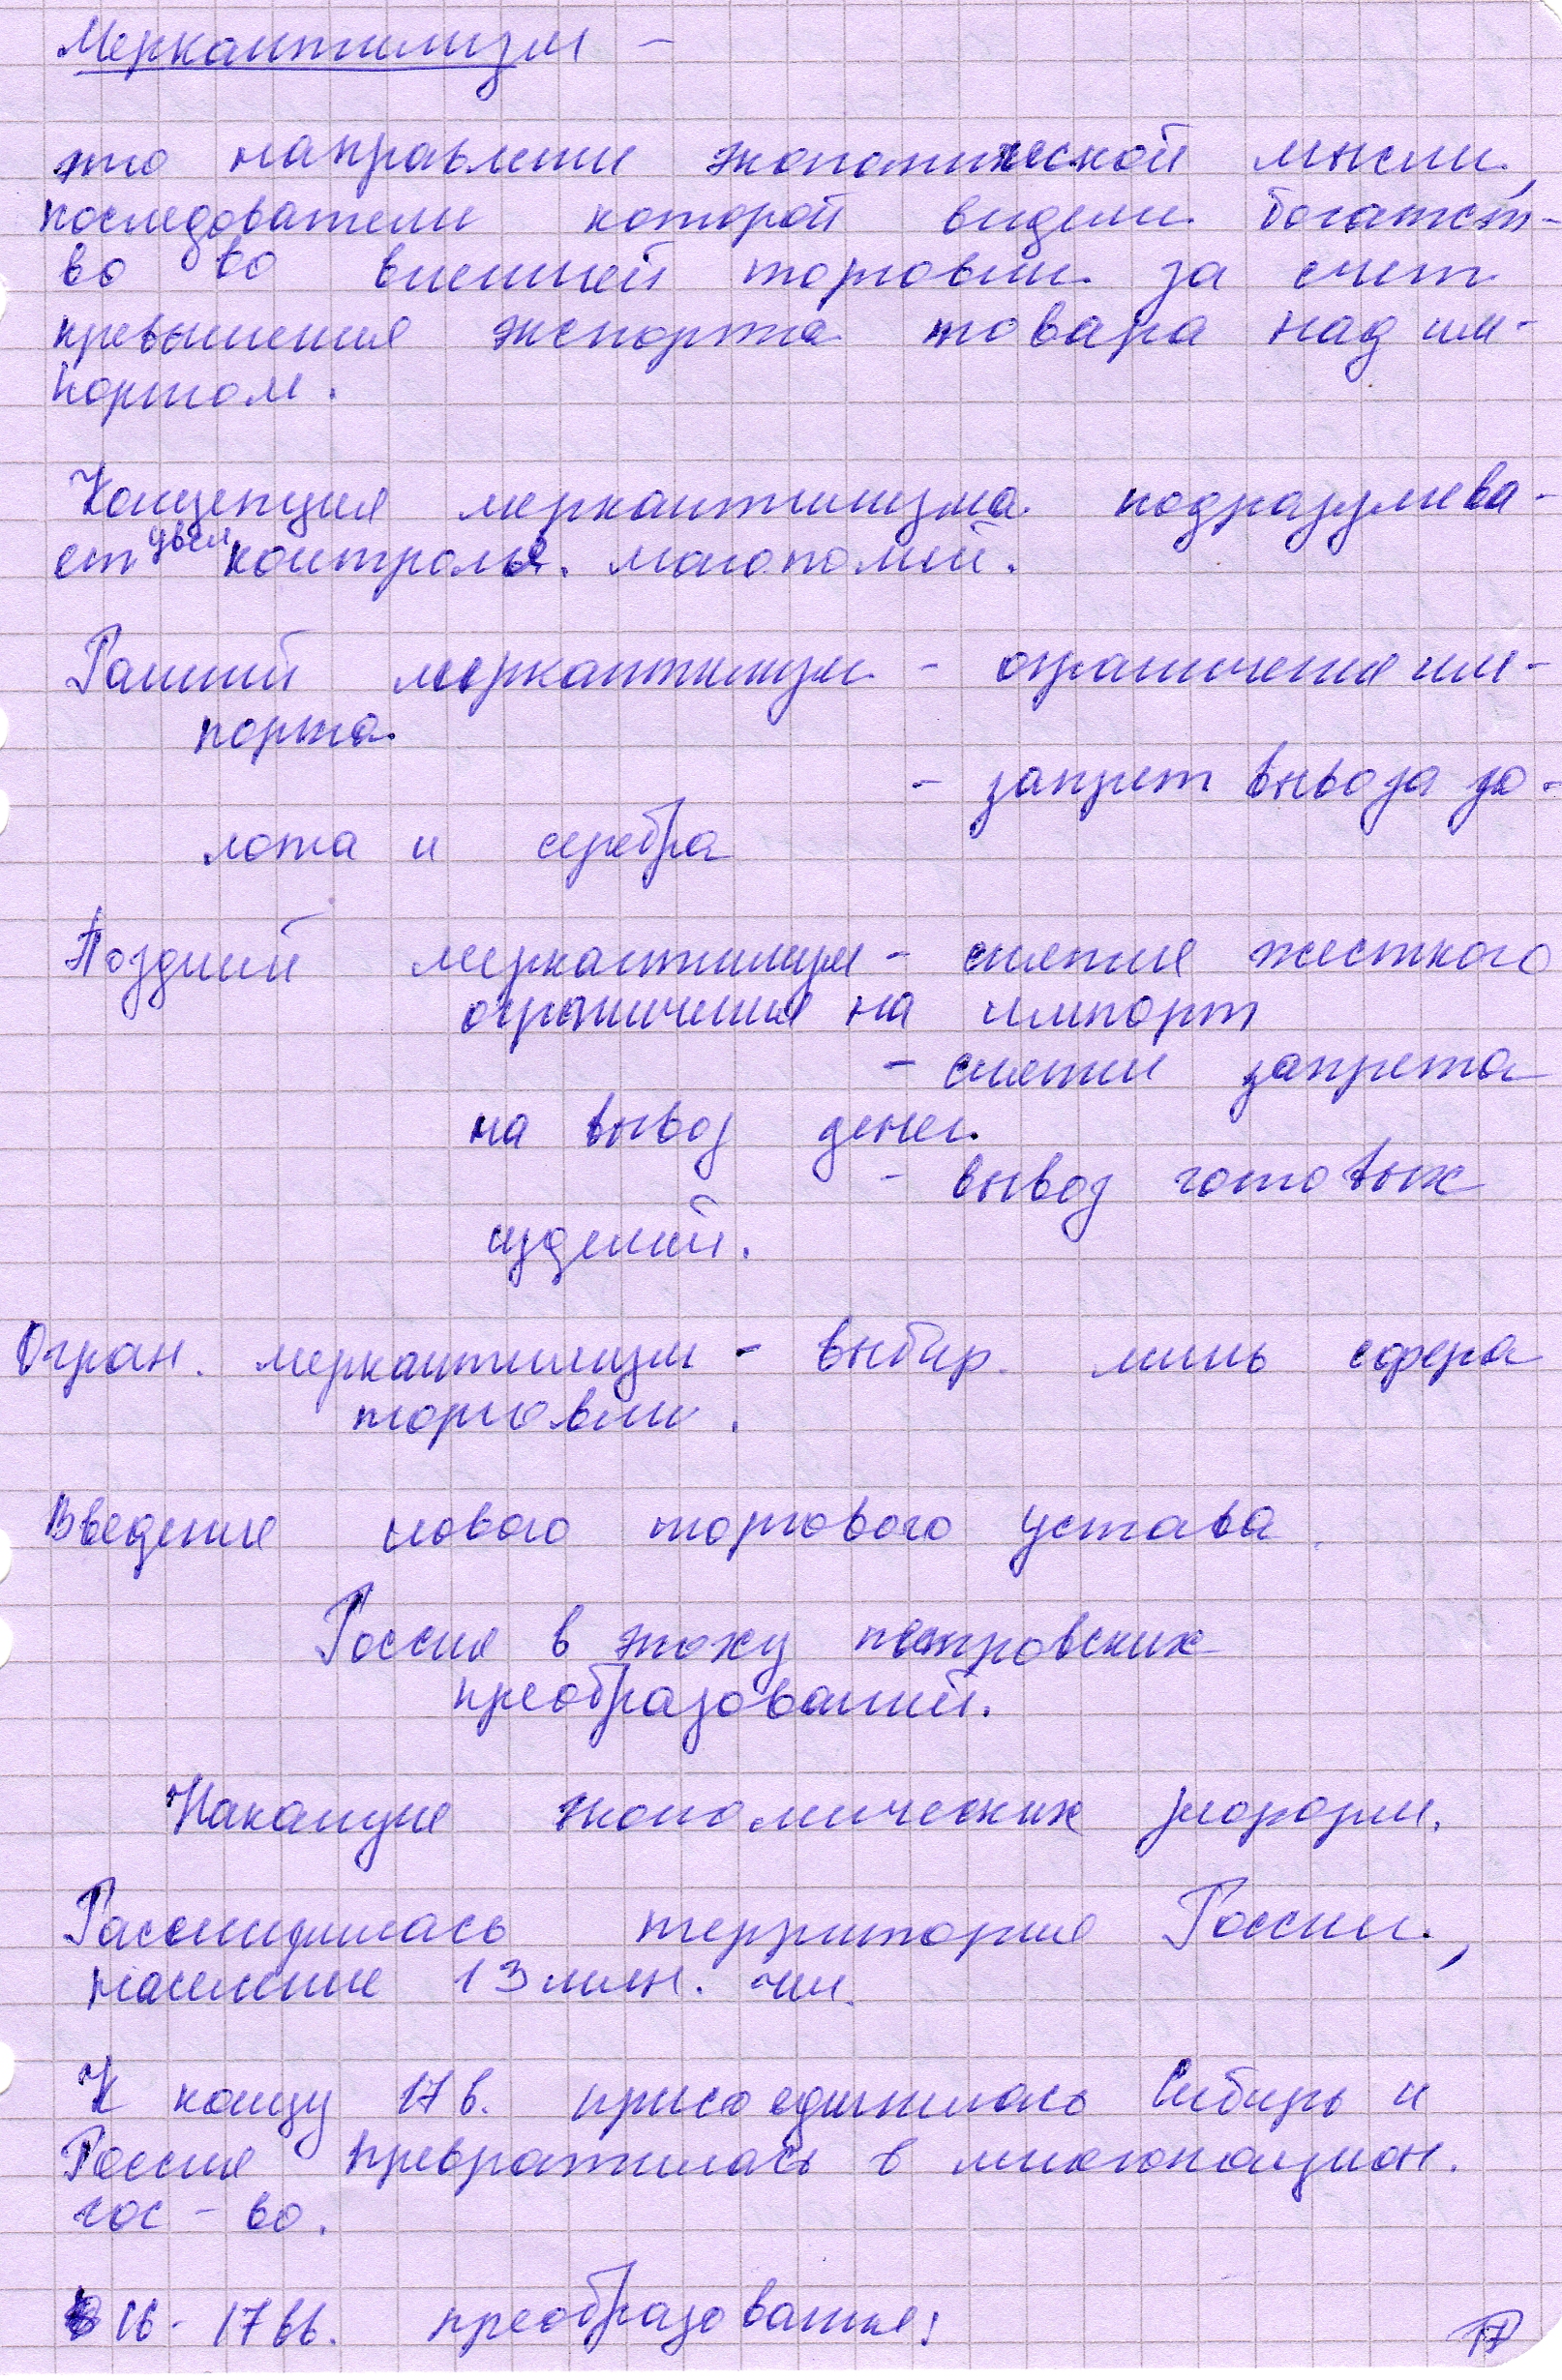 Меркантилизм –
это направление экономической мысли,
последователи которой видели богатст-
во во внешней торговли за счет
превышения экспорта товара над им-
портом.
Концепция меркантилизма подразумева-
ет увел контроля монополий.
Ранний меркантилизм - ограничения им-
порта
- запрет вывоза зо-
лота и серебра
Поздний меркантилизм - снятие жесткого
ограничения на импорт
- снятие запрета
на вывоз денег
- вывоз готовых
изделий.
Огран. меркантилизм - выбир. лишь сфера
торговли.
Введение нового торгового устава
Россия в эпоху петровских
преобразований.
Накануне экономических реформ.
Расширилась территория России,
население 13 млн. чел.
К концу 17 в. присоединилась Сибирь и
Россия превратилась в многонацион.
гос-во.
В 16-17 вв. преобразования:
17